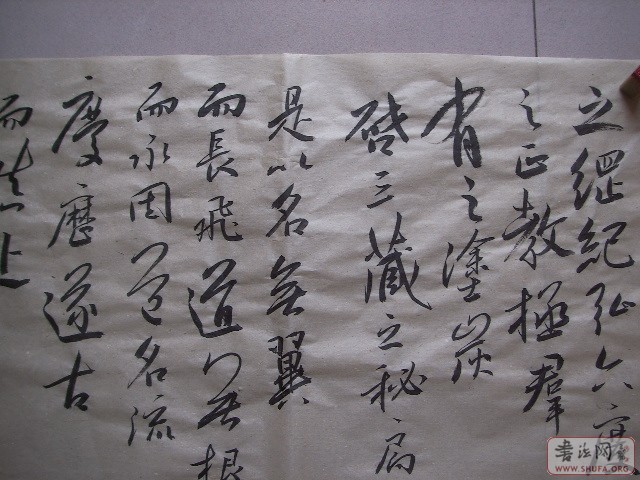 之綱紀弘六度
之正教極羣
有之塗炭
啓三藏之秘扃
是以名無翼
而長飛道無根
而永固道名流
慶曆遂古
而
書法网
WWW.SHUFA.ORG